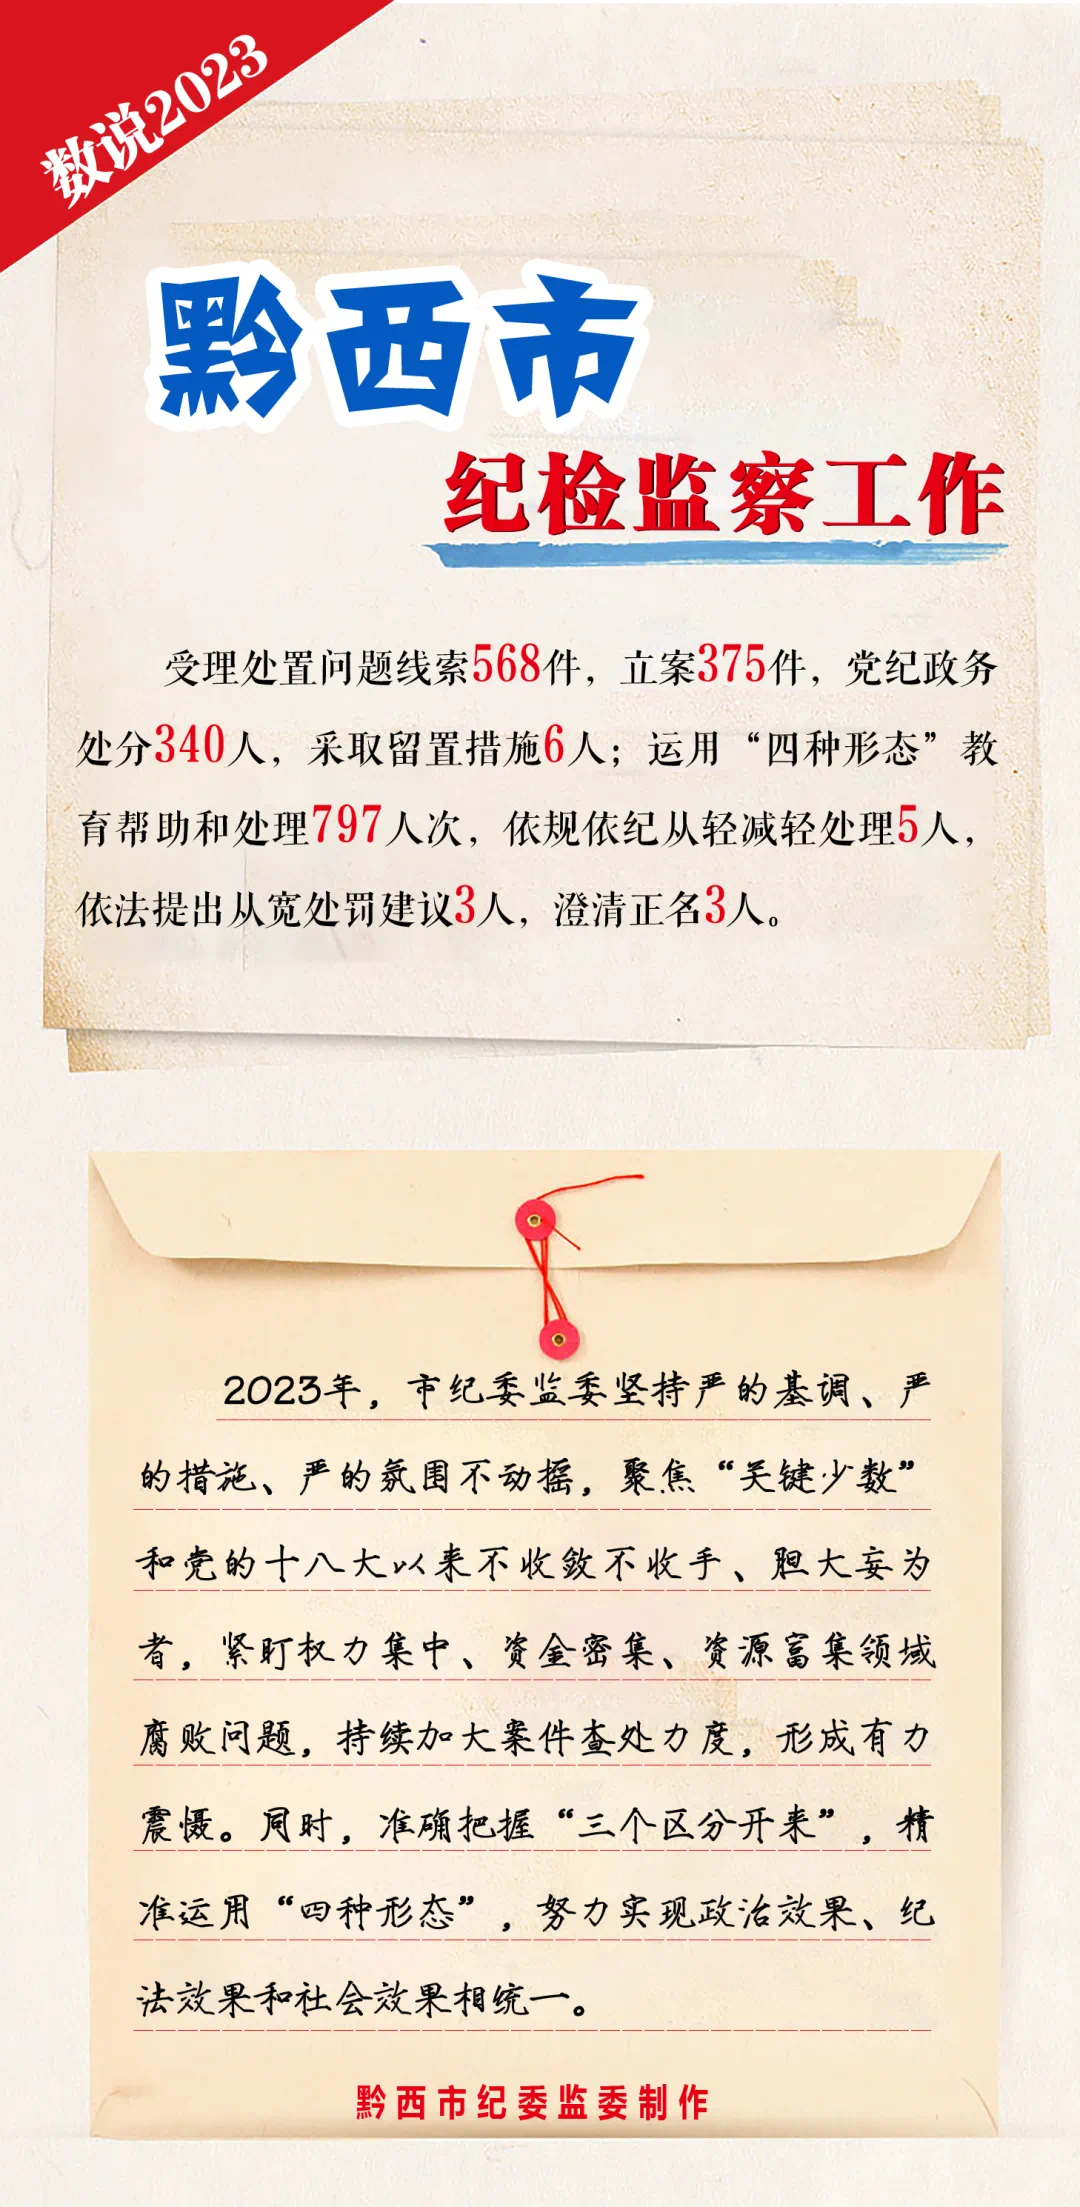 数说2023
黔西市
纪检监察工作
受理处置问题线索568件，立案375件，党纪政务
处分340人，采取留置措施6人；运用“四种形态”教
育帮助和处理797人次，依规依纪从轻减轻处理5人，
依法提出从宽处罚建议3人，澄清正名3人。
2023年，市纪委监委坚持严的基调、严
的措施、严的氛围不动摇，聚焦“关键少数”
和党的十八大以来不收敛不收手、胆大妄为
者，紧盯权力集中、资金密集、资源富集领域
腐败问题，持续加大案件查处力度，形成有力
震慑。同时，准确把握“三个区分开来”，精
准运用“四种形态”，努力实现政治效果、纪
法效果和社会效果相统一。
黔西市纪委监委制作